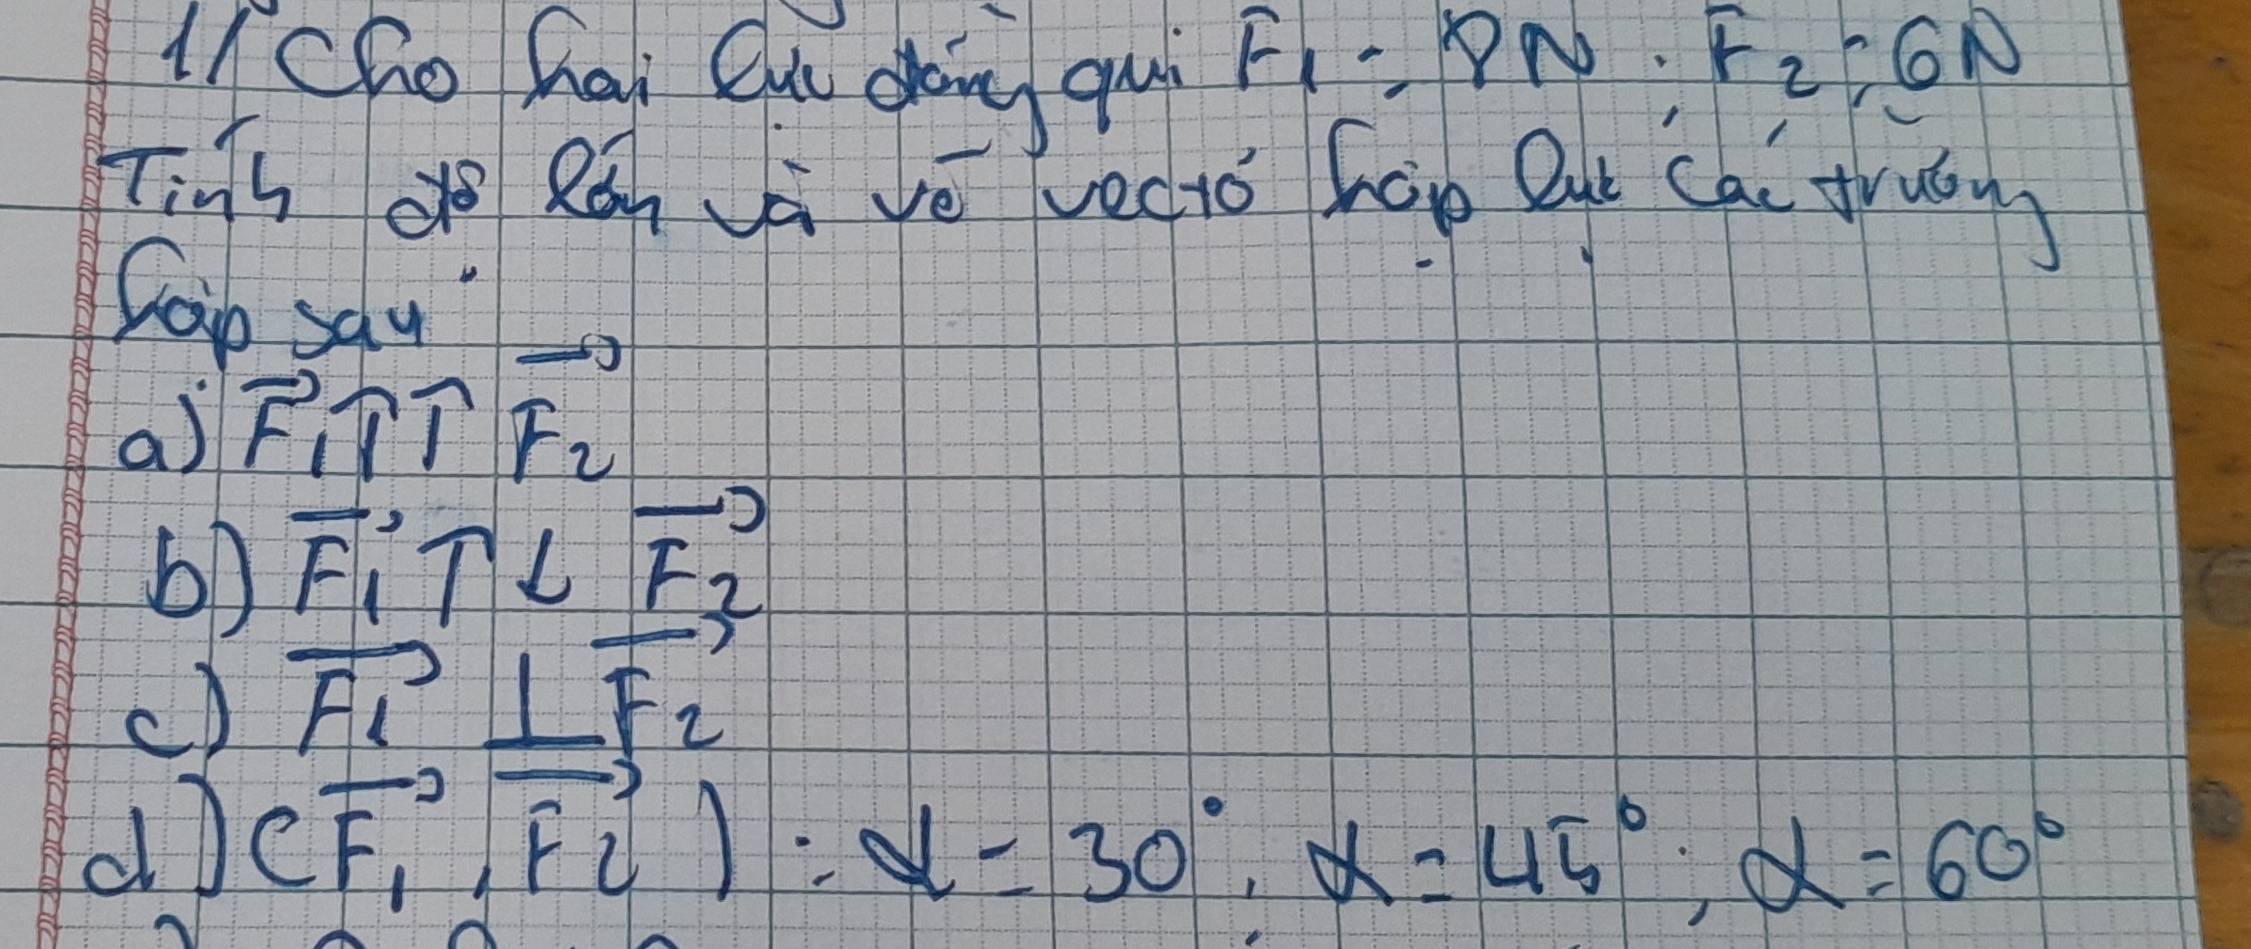 1/ Cho hai lực đồng qui F1 = 8N. F2 = 6N
Tính độ lớn và vẽ vectơ hợp lực các trường
hợp sau
a) F1 ↑↑ F2
b) F1 ↑↓ F2
c) F1 ⊥ F2
d) (F1, F2): α = 30°; α = 45°; α = 60°